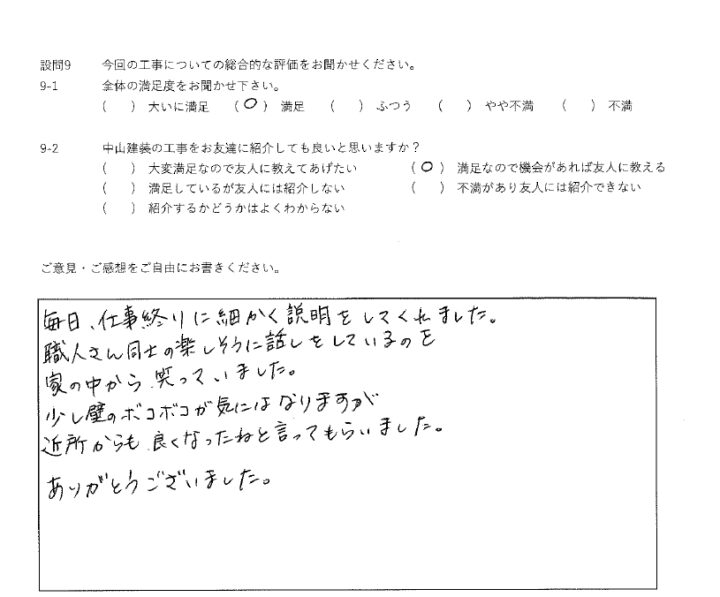 設問9 今回の工事についての総合的な評価をお聞かせください。
9-1 全体の満足度をお聞かせ下さい。
( ) 大いに満足 (○) 満足 ( ) ふつう ( ) やや不満 ( ) 不満
9-2 中山建装の工事をお友達に紹介しても良いと思いますか？
( ) 大変満足なので友人に教えてあげたい (○) 満足なので機会があれば友人に教える
( ) 満足しているが友人には紹介しない ( ) 不満があり友人には紹介できない
( ) 紹介するかどうかはよくわからない
ご意見・ご感想をご自由にお書きください。
毎日、仕事終りに細かく説明をしてくれました。
職人さん同士の楽しそうに話しをしているのを
家の中から笑っていました。
少し壁のボコボコが気にはなりますが
近所からも良くなったねと言ってもらいました。
ありがとうございました。